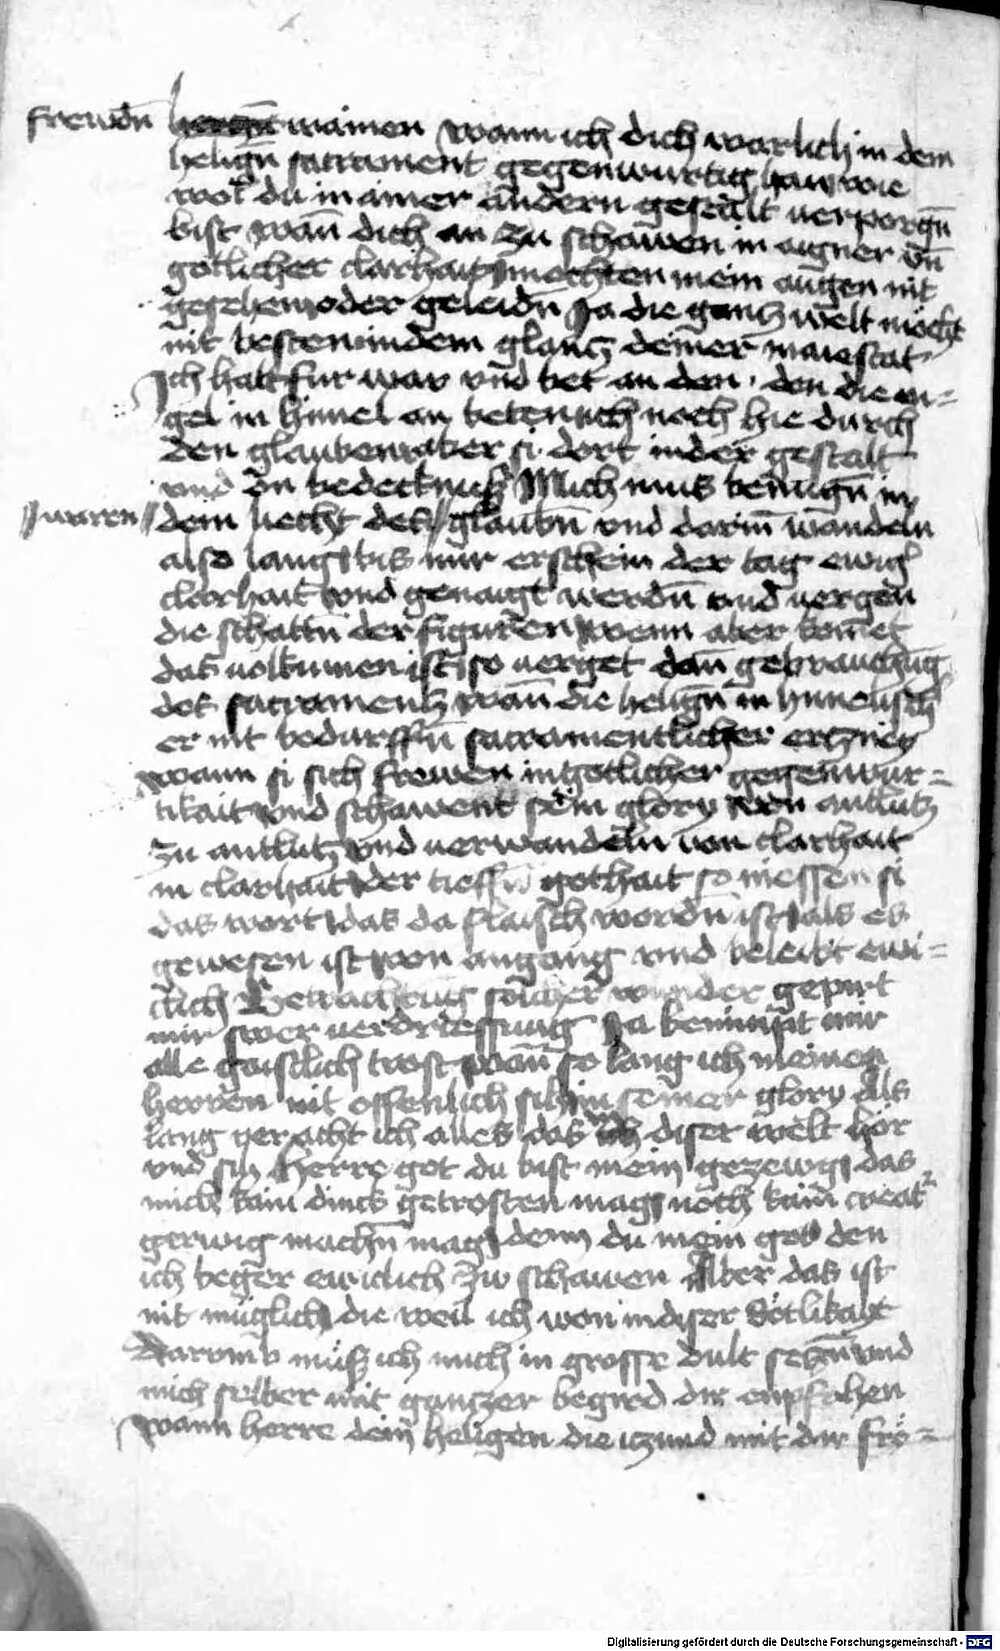 frewdn̄ wainen wann ich dich warlich in dem
helign̄ sacrament gegenwurtig han wie
wol du in ainer andern gestalt verporgn̄
bist wan̄ dich an zu schawen in aigner vn̄
gotlicher clarhait mochten mein augen nit
gesehen oder geleidn̄ Ja die gantz welt möcht
nit besten in dem glantz deiner maiestat
Ich hab fur war vnd bet an den den die en=
gel in himel an beten ich noch hie durch
den glauben aber si dort in der gestalt
vnd on bedecknuß Mich mus benugn̄ in
waren dem liecht des glaubn̄ vnd darin̄ wandeln
also lang bis mir erschein der tag ewigͥ
clarhait vnd genaigt werdn̄ vnd vergen
die schattn̄ der figuren wenn aber komet
das volkumen ist so verget dan̄ gebrauchūg
des sacramentz wan̄ die helign̄ in himelisch
er nit bedurffn̄ sacramentlicher ertzney
wann si sich frewen in gotlicher gegenwur=
tikait vnd schawent sein glory von antlutz
zu antlutz vnd verwandeln von clarhait
in clarhait der tieffn̄ gothait so niessen si
das wort das da flaisch wordn̄ ist als es
gewesen ist von angang vnd beleibt ewi=
clich Betrachtung solcher wunder gepirt
mir swer verdriessung Ja benimpt mir
alle gaistlich trost wan̄ so lang ich meinen
herren nit offenlich sich in seiner glory Als
lang veracht ich alles das ich diser welt hör
vnd sich Herre got du bist mein gezewg das
mich kain dincs getrosten mag noch kain creatͬ
gerwig machn̄ mag denn du mein got den
ich beger ewiclich zw schawen Aber das ist
nit müglich die weil ich won in diser dötlikait
Darumb müß ich mich in grosse dult setzn̄ vnd
mich selber mit gantzer begird dir enpfelhen
wann herre dein heligen die iczund mit dir frö=
Digitalisierung gefördert durch die Deutsche Forschungsgemeinschaft - DFG